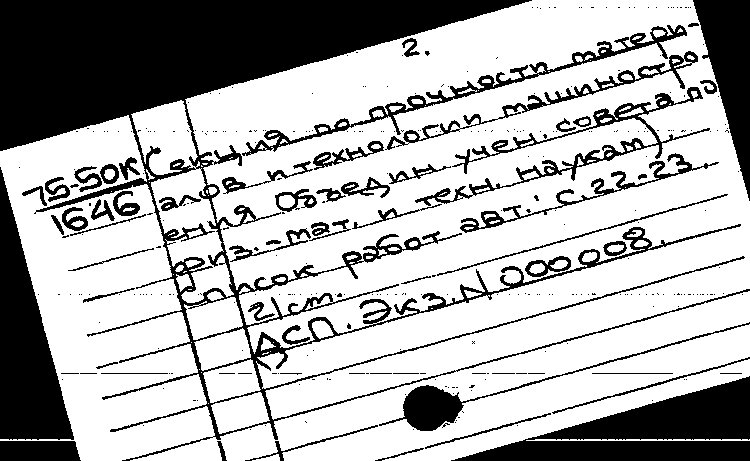 2.
Секция по прочности матери-
75-50к алов и технологии машиностро-
1646 ения Объедин. учен. совета по
физ.-мат. и техн. наукам).
Список работ авт.: с. 22-23.
21 см.
ДСП. Экз. N 000008.